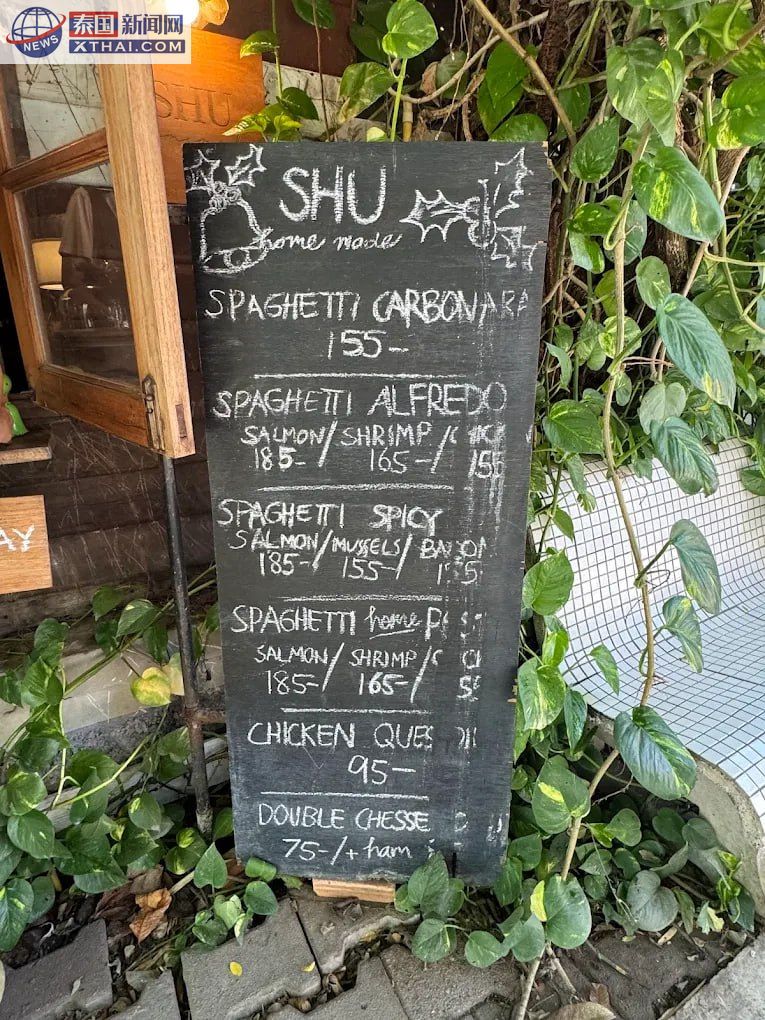 泰国新闻网
NEWS XTHAI.COM
SHU
SHU
home made
SPAGHETTI CARBONARA
155-
SPAGHETTI ALFREDO
SALMON/SHRIMP/
185-/ 165-/ 155
SPAGHETTI SPICY
SALMON/MUSSELS/
185-/ 155-/
SPAGHETTI home
SALMON/SHRIMP/
185-/ 165-/
CHICKEN
95-
DOUBLE CHESSE
75-/+ham
AY